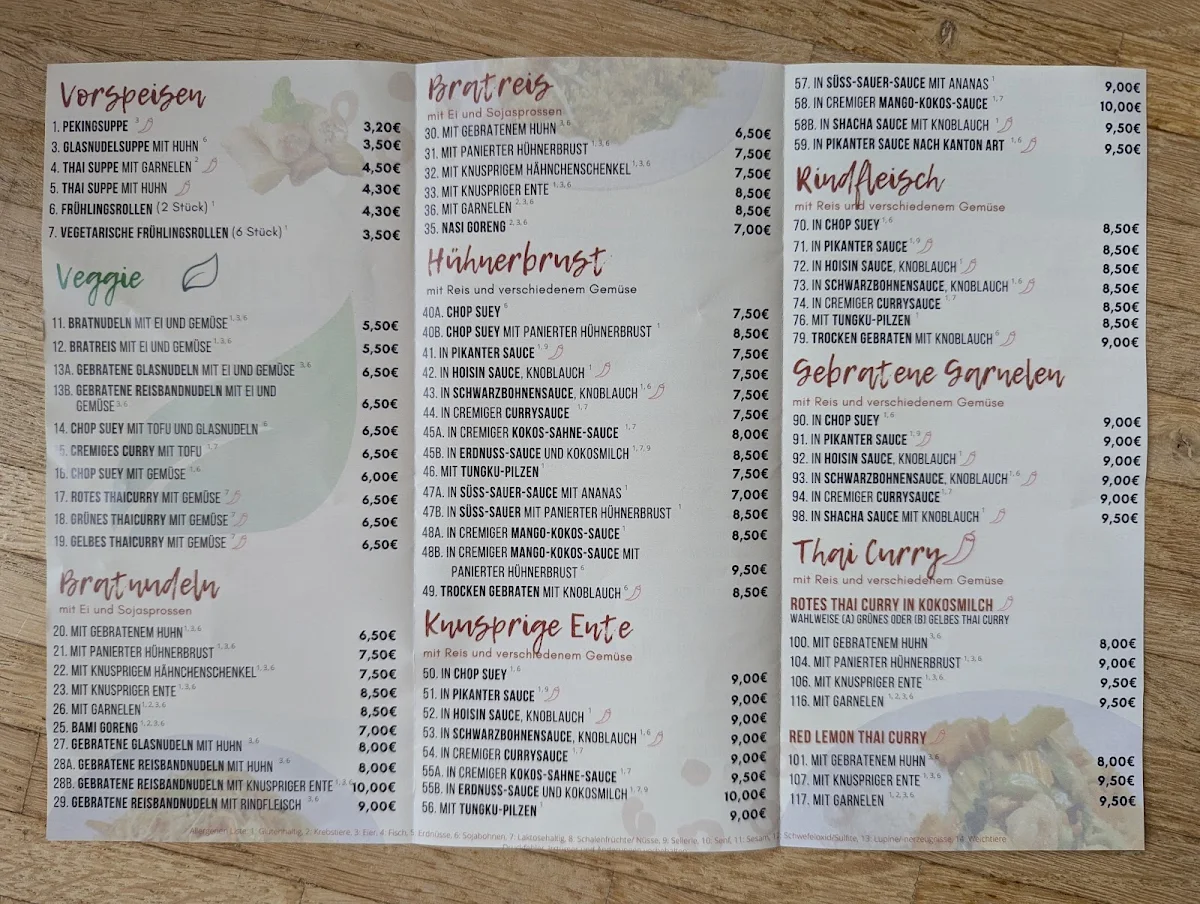 Vorspeisen
1. PEKINGSUPPE ³ 3,20€
3. GLASNUDELSUPPE MIT HUHN ⁶ 3,50€
4. THAI SUPPE MIT GARNELEN ² 4,50€
5. THAI SUPPE MIT HUHN 4,30€
6. FRÜHLINGSROLLEN (2 Stück) ¹ 4,30€
7. VEGETARISCHE FRÜHLINGSROLLEN (6 Stück) ¹ 3,50€
Veggie
11. BRATNUDELN MIT EI UND GEMÜSE 1,3,6 5,50€
12. BRATREIS MIT EI UND GEMÜSE 1,3,6 5,50€
13A. GEBRATENE GLASNUDELN MIT EI UND GEMÜSE 3,6 6,50€
13B. GEBRATENE REISBANDNUDELN MIT EI UND
GEMÜSE 3,6 6,50€
14. CHOP SUEY MIT TOFU UND GLASNUDELN 6 6,50€
5. CREMIGES CURRY MIT TOFU 1,7 6,50€
16. CHOP SUEY MIT GEMÜSE 1,6 6,00€
17. ROTES THAICURRY MIT GEMÜSE 7 6,50€
18. GRÜNES THAICURRY MIT GEMÜSE 7 6,50€
19. GELBES THAICURRY MIT GEMÜSE 7 6,50€
Bratnudeln
mit Ei und Sojasprossen
20. MIT GEBRATENEM HUHN 1,3,6 6,50€
21. MIT PANIERTER HÜHNERBRUST 1,3,6 7,50€
22. MIT KNUSPRIGEM HÄHNCHENSCHENKEL 1,3,6 7,50€
23. MIT KNUSPRIGER ENTE 1,3,6 8,50€
26. MIT GARNELEN 1,2,3,6 8,50€
25. BAMI GORENG 1,2,3,6 7,00€
27. GEBRATENE GLASNUDELN MIT HUHN 3,6 8,00€
28A. GEBRATENE REISBANDNUDELN MIT HUHN 3,6 8,00€
28B. GEBRATENE REISBANDNUDELN MIT KNUSPRIGER ENTE 1,3,6 10,00€
29. GEBRATENE REISBANDNUDELN MIT RINDFLEISCH 3,6 9,00€
Bratreis
mit Ei und Sojasprossen
30. MIT GEBRATENEM HUHN 3,6 6,50€
31. MIT PANIERTER HÜHNERBRUST 1,3,6 7,50€
32. MIT KNUSPRIGEM HÄHNCHENSCHENKEL 1,3,6 7,50€
33. MIT KNUSPRIGER ENTE 1,3,6 8,50€
36. MIT GARNELEN 2,3,6 8,50€
35. NASI GORENG 2,3,6 7,00€
Hühnerbrust
mit Reis und verschiedenem Gemüse
40A. CHOP SUEY 6 7,50€
40B. CHOP SUEY MIT PANIERTER HÜHNERBRUST 1 8,50€
41. IN PIKANTER SAUCE 1,9 7,50€
42. IN HOISIN SAUCE, KNOBLAUCH 1 7,50€
43. IN SCHWARZBOHNENSAUCE, KNOBLAUCH 1,6 7,50€
44. IN CREMIGER CURRYSAUCE 1,7 7,50€
45A. IN CREMIGER KOKOS-SAHNE-SAUCE 1,7 8,00€
45B. IN ERDNUSS-SAUCE UND KOKOSMILCH 1,7,9 8,50€
46. MIT TUNGKU-PILZEN 1 7,50€
47A. IN SÜSS-SAUER-SAUCE MIT ANANAS 1 7,00€
47B. IN SÜSS-SAUER MIT PANIERTER HÜHNERBRUST 1 8,50€
48A. IN CREMIGER MANGO-KOKOS-SAUCE 1 8,50€
48B. IN CREMIGER MANGO-KOKOS-SAUCE MIT
PANIERTER HÜHNERBRUST 6 9,50€
49. TROCKEN GEBRATEN MIT KNOBLAUCH 6 8,50€
Knusprige Ente
mit Reis und verschiedenem Gemüse
50. IN CHOP SUEY 1,6 9,00€
51. IN PIKANTER SAUCE 1,9 9,00€
52. IN HOISIN SAUCE, KNOBLAUCH 1 9,00€
53. IN SCHWARZBOHNENSAUCE, KNOBLAUCH 1,6 9,00€
54. IN CREMIGER CURRYSAUCE 1,7 9,00€
55A. IN CREMIGER KOKOS-SAHNE-SAUCE 1,7 9,50€
55B. IN ERDNUSS-SAUCE UND KOKOSMILCH 1,7,9 10,00€
56. MIT TUNGKU-PILZEN 1 9,00€
57. IN SÜSS-SAUER-SAUCE MIT ANANAS 1 9,00€
58. IN CREMIGER MANGO-KOKOS-SAUCE 1,7 10,00€
58B. IN SHACHA SAUCE MIT KNOBLAUCH 1 9,50€
59. IN PIKANTER SAUCE NACH KANTON ART 1,6 9,50€
Rindfleisch
mit Reis und verschiedenem Gemüse
70. IN CHOP SUEY 1,6 8,50€
71. IN PIKANTER SAUCE 1,9 8,50€
72. IN HOISIN SAUCE, KNOBLAUCH 1 8,50€
73. IN SCHWARZBOHNENSAUCE, KNOBLAUCH 1,6 8,50€
74. IN CREMIGER CURRYSAUCE 1,7 8,50€
76. MIT TUNGKU-PILZEN 1 8,50€
79. TROCKEN GEBRATEN MIT KNOBLAUCH 6 9,00€
Gebratene Garnelen
mit Reis und verschiedenem Gemüse
90. IN CHOP SUEY 1,6 9,00€
91. IN PIKANTER SAUCE 1,9 9,00€
92. IN HOISIN SAUCE, KNOBLAUCH 1 9,00€
93. IN SCHWARZBOHNENSAUCE, KNOBLAUCH 1,6 9,00€
94. IN CREMIGER CURRYSAUCE 1,7 9,00€
98. IN SHACHA SAUCE MIT KNOBLAUCH 1 9,50€
Thai Curry
mit Reis und verschiedenem Gemüse
ROTES THAI CURRY IN KOKOSMILCH
WAHLWEISE (A) GRÜNES ODER (B) GELBES THAI CURRY
100. MIT GEBRATENEM HUHN 3,6 8,00€
104. MIT PANIERTER HÜHNERBRUST 1,3,6 9,00€
106. MIT KNUSPRIGER ENTE 1,3,6 9,50€
116. MIT GARNELEN 1,2,3,6 9,50€
RED LEMON THAI CURRY
101. MIT GEBRATENEM HUHN 3,6 8,00€
107. MIT KNUSPRIGER ENTE 1,3,6 9,50€
117. MIT GARNELEN 1,2,3,6 9,50€
Allergenen Liste: 1: Glutenhaltig, 2: Krebstiere, 3: Eier, 4: Fisch, 5: Erdnüsse, 6: Sojabohnen, 7: Laktosehaltig, 8: Schalenfrüchte/Nüsse, 9: Sellerie, 10: Senf, 11: Sesam, 12: Schwefeloxid/Sulfite, 13: Lupine/-nerzeugnisse, 14: Weichtiere